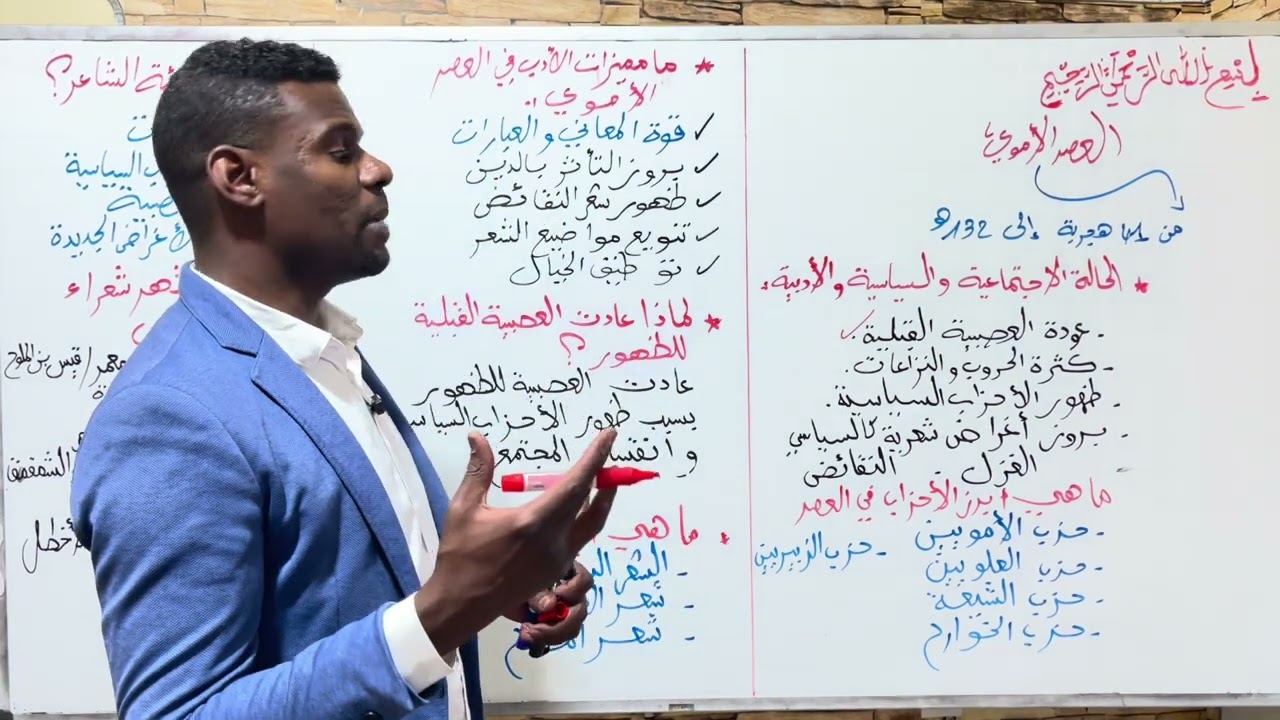 بسم الله الرحمن الرحيم
العصر الأموي
من 41 هجرية إلى 132هـ
* الحالة الاجتماعية والسياسية والأدبية:
- عودة العصبية القبلية.
- كثرة الحروب والنزاعات.
- ظهور الأحزاب السياسية.
- بروز أغراض شعرية كالسياسي
الغزل - النقائض
ما هي أبرز الأحزاب في العصر
- حزب الأمويين
- حزب الزبيريين
- حزب العلويين
- حزب الشيعة
- حزب الخوارج
* ما مميزات الأدب في العصر
الأموي:
✓ قوة المعاني والعبارات
✓ بروز التأثر بالدين
✓ ظهور شعر النقائض
✓ تنويع مواضيع الشعر
✓ الخيال
* لماذا عادت العصبية القبلية
للظهور؟
عادت العصبية للظهور
بسبب ظهور الأحزاب
المجتمع
* ما هي
- الشعر
- شعر
- شعر
الشاعر؟
السياسية
الجديدة
شعراء
معمر / قيس بن الملوح
الشمقمق